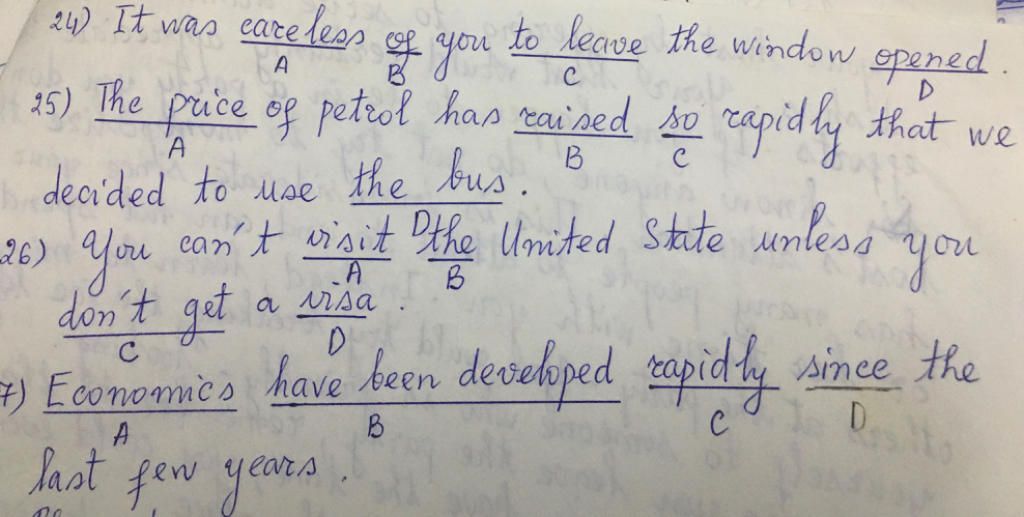 24) It was careless of you to leave the window opened.
A B C D
25) The price of petrol has raised so rapidly that we
A B C
decided to use the bus.
D
26) You can't visit the United State unless you
A B
don't get a visa.
C D
7) Economics have been developed rapidly since the
A B C D
last few years.